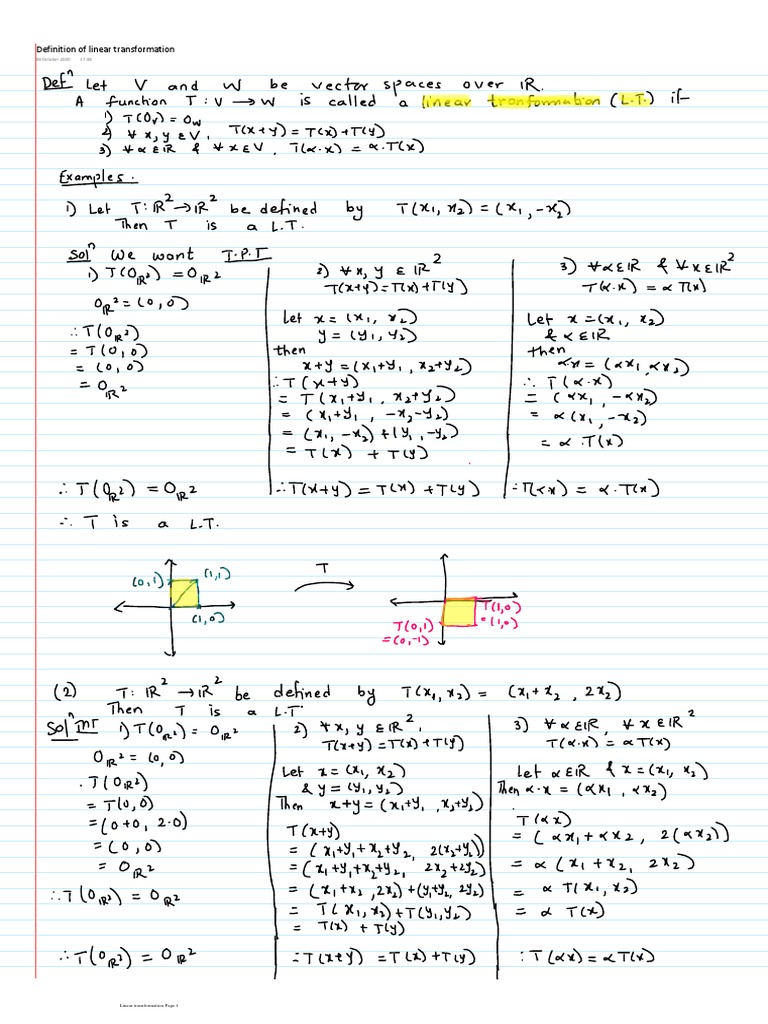 Definition of linear transformation
05 October 2020 17:49
Defⁿ Let V and W be vector spaces over IR.
A function T : V → W is called a linear tronformation (L.T.) if
1) T(0ᵥ) = 0w
2) ∀ x, y ∈ V, T(x+y) = T(x)+T(y)
3) ∀ α ∈ IR & ∀ x ∈ V, T(α·x) = α·T(x)
Examples.
1) Let T: IR² → IR² be defined by T(x₁, x₂) = (x₁, -x₂)
Then T is a L.T.
Solⁿ We want T.P.T
1) T(0_IR²) = 0_IR²
0_IR² = (0, 0)
∴ T(0_IR²)
= T(0, 0)
= (0, 0)
= 0_IR²
∴ T(0_IR²) = 0_IR²
2) ∀ x, y ∈ IR²
T(x+y) = T(x)+T(y)
Let x = (x₁, x₂)
y = (y₁, y₂)
then
x+y = (x₁+y₁, x₂+y₂)
∴ T(x+y)
= T(x₁+y₁, x₂+y₂)
= (x₁+y₁, -x₂-y₂)
= (x₁, -x₂) + (y₁, -y₂)
= T(x) + T(y)
∴ T(x+y) = T(x) + T(y)
3) ∀ α ∈ IR & ∀ x ∈ IR²
T(α·x) = α T(x)
Let x = (x₁, x₂)
& α ∈ IR
then
αx = (αx₁, αx₂)
∴ T(α·x)
= (αx₁, -αx₂)
= α(x₁, -x₂)
= α·T(x)
∴ T(αx) = α·T(x)
∴ T is a L.T.
(0,1) (1,1)
(1,0)
T
T(1,0)
= (1,0)
T(0,1)
= (0,-1)
(2) T: IR² → IR² be defined by T(x₁, x₂) = (x₁+x₂, 2x₂)
Then T is a L.T.
Solⁿ INT 1) T(0_IR²) = 0_IR²
0_IR² = (0, 0)
. T(0_IR²)
= T(0, 0)
= (0+0, 2·0)
= (0, 0)
= 0_IR²
∴ T(0_IR²) = 0_IR²
∴ T(0_IR²) = 0_IR²
2) ∀ x, y ∈ IR²,
T(x+y) = T(x)+T(y)
Let x = (x₁, x₂)
& y = (y₁, y₂)
Then x+y = (x₁+y₁, x₂+y₂)
T(x+y)
= (x₁+y₁+x₂+y₂, 2(x₂+y₂))
= (x₁+y₁+x₂+y₂, 2x₂+2y₂)
= (x₁+x₂, 2x₂)+(y₁+y₂, 2y₂)
= T(x₁, x₂)+T(y₁, y₂)
= T(x) + T(y)
∴ T(x+y) = T(x)+T(y)
3) ∀ α ∈ IR, ∀ x ∈ IR²
T(α·x) = α T(x)
Let α ∈ IR & x = (x₁, x₂)
Then α·x = (αx₁, αx₂)
. T(αx)
= (αx₁+αx₂, 2(αx₂))
= α(x₁+x₂, 2x₂)
= α T(x₁, x₂)
= α T(x)
∴ T(αx) = α T(x)
Linear transformation Page 1